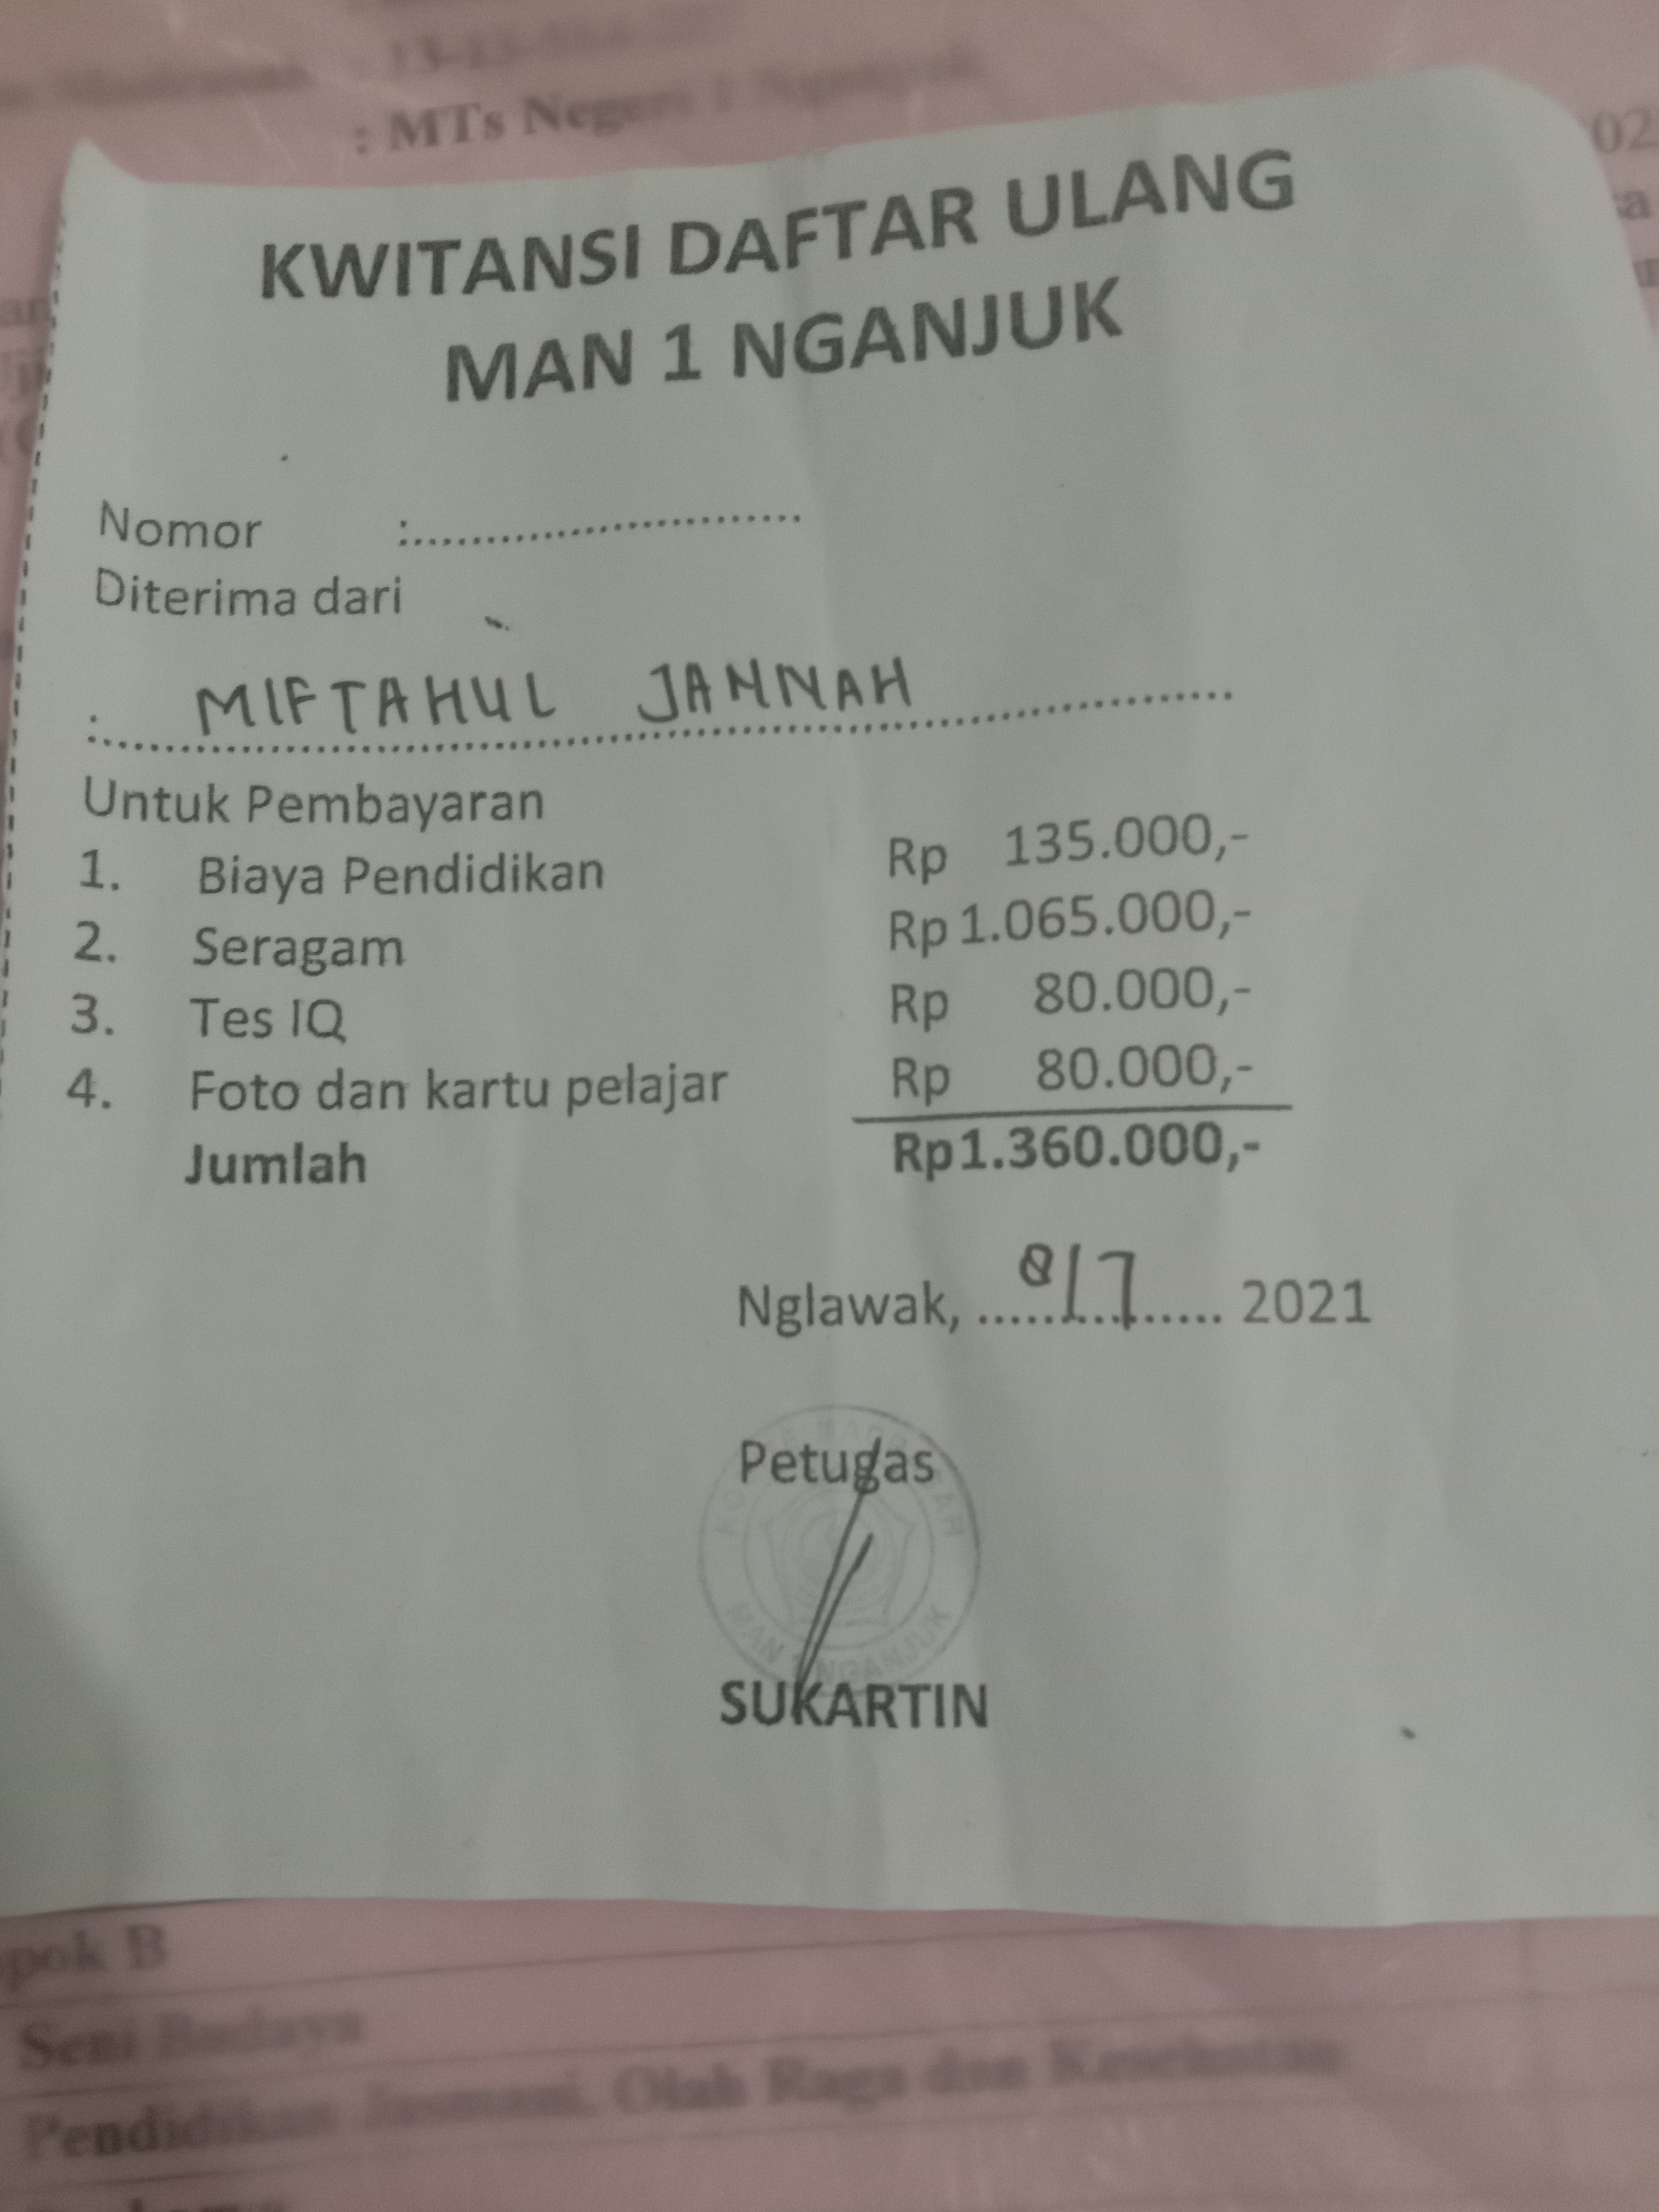 : MTs Negeri 1 Nganjuk
KWITANSI DAFTAR ULANG
MAN 1 NGANJUK
Nomor :............................
Diterima dari
: MIFTAHUL JANNAH
Untuk Pembayaran
1. Biaya Pendidikan Rp 135.000,-
2. Seragam Rp 1.065.000,-
3. Tes IQ Rp 80.000,-
4. Foto dan kartu pelajar Rp 80.000,-
Jumlah Rp1.360.000,-
Nglawak, 8/7 2021
Petugas
MAN 1 NGANJUK
SUKARTIN
pok B
Seni Budaya
Pendidikan Jasmani, Olah Raga dan Kesehatan